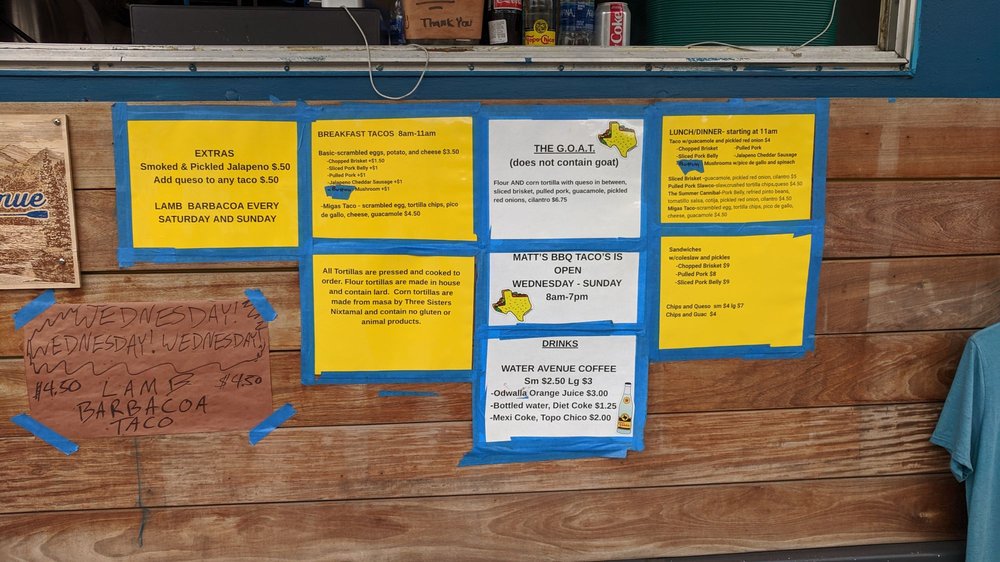 Thank You
Topo Chico
Coke
nue
EXTRAS
Smoked & Pickled Jalapeno $.50
Add queso to any taco $.50
LAMB BARBACOA EVERY
SATURDAY AND SUNDAY
BREAKFAST TACOS 8am-11am
Basic-scrambled eggs, potato, and cheese $3.50
-Chopped Brisket +$1.50
-Sliced Pork Belly +$1
-Pulled Pork +$1
-Jalapeno Cheddar Sausage +$1
Mushroom +$1
-Migas Taco - scrambled egg, tortilla chips, pico
de gallo, cheese, guacamole $4.50
The G.O.A.T.
(does not contain goat)
Flour AND corn tortilla with queso in between,
sliced brisket, pulled pork, guacamole, pickled
red onions, cilantro $6.75
LUNCH/DINNER- starting at 11am
Taco w/guacamole and pickled red onion $4
-Chopped Brisket -Pulled Pork
-Sliced Pork Belly -Jalapeno Cheddar Sausage
Mushrooms w/pico de gallo and spinach
Sliced Brisket -guacamole, pickled red onion, cilantro $5
Pulled Pork Slawco-slaw,crushed tortilla chips,queso $4.50
The Summer Cannibal-Pork Belly, refried pinto beans,
tomatillo salsa, cotija, pickled red onion, cilantro $4.50
Migas Taco-scrambled egg, tortilla chips, pico de gallo,
cheese, guacamole $4.50
All Tortillas are pressed and cooked to
order. Flour tortillas are made in house
and contain lard. Corn tortillas are
made from masa by Three Sisters
Nixtamal and contain no gluten or
animal products.
MATT'S BBQ TACO'S IS
OPEN
WEDNESDAY - SUNDAY
8am-7pm
Sandwiches
w/coleslaw and pickles
-Chopped Brisket $9
-Pulled Pork $8
-Sliced Pork Belly $9
Chips and Queso sm $4 lg $7
Chips and Guac $4
DRINKS
WATER AVENUE COFFEE
Sm $2.50 Lg $3
-Odwalla Orange Juice $3.00
-Bottled water, Diet Coke $1.25
-Mexi Coke, Topo Chico $2.00
WEDNESDAY!
WEDNESDAY! WEDNESDAY!
$4.50 LAMB $4.50
BARBACOA
TACO